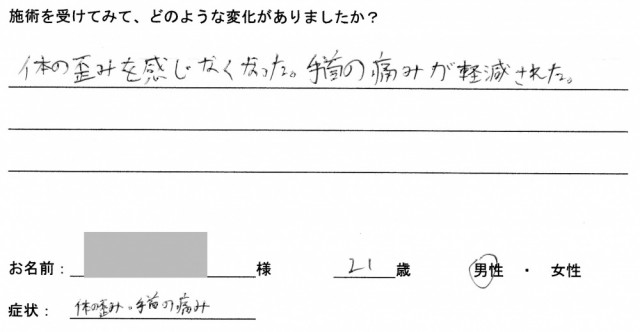 施術を受けてみて、どのような変化がありましたか？
体の歪みを感じなくなった。手首の痛みが軽減された。
お名前：　様　21歳　男性 ・ 女性
症状：体の歪み・手首の痛み